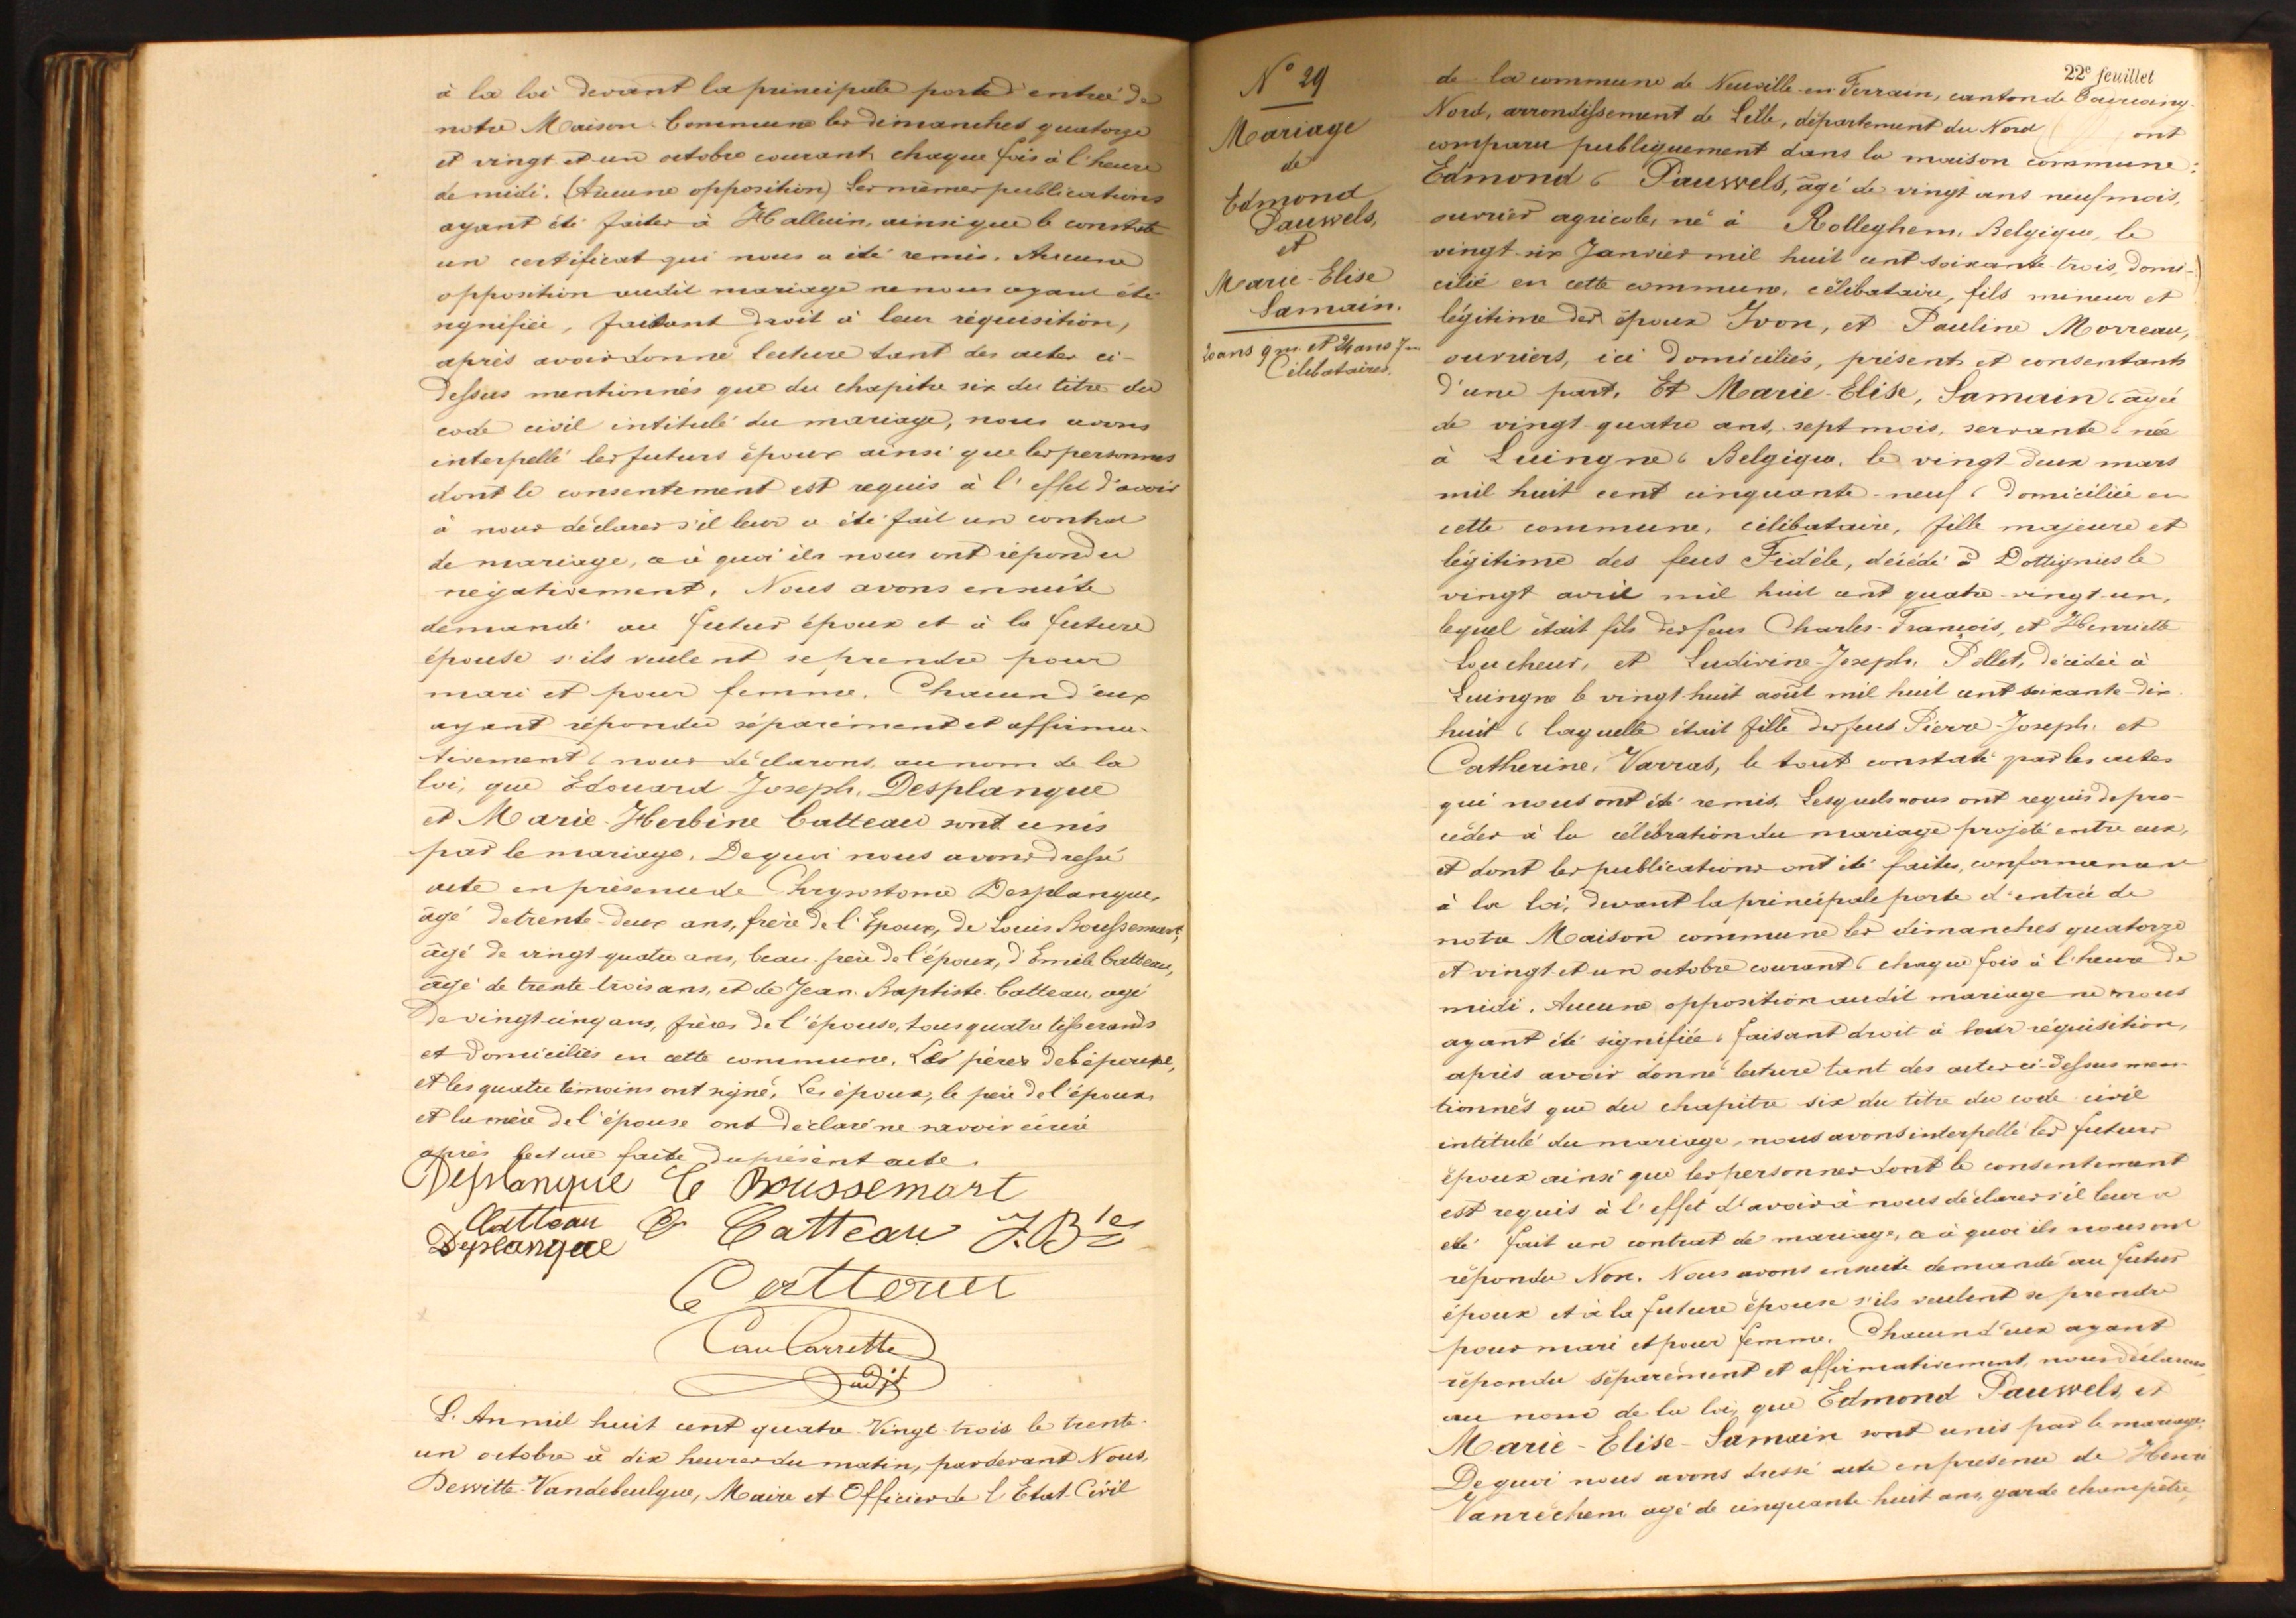 à la loi devant la principale porte d'entrée de
notre Maison Commune les dimanches quatorze
et vingt et un octobre courant, chaque fois à l'heure
de midi. (Aucune opposition) Les mêmes publications
ayant été faites à Halluin, ainsi que le constate
un certificat qui nous a été remis. Aucune
opposition audit mariage ne nous ayant été
signifiée, faisant droit à leur réquisition,
après avoir donné lecture tant des actes ci-
dessus mentionnés que du chapitre six du titre du
code civil intitulé du mariage, nous avons
interpellé les futurs époux ainsi que les personnes
dont le consentement est requis à l'effet d'avoir
à nous déclarer s'il leur a été fait un contrat
de mariage, a à quoi ils nous ont répondu
négativement. Nous avons ensuite
demandé au futur époux et à la future
épouse s'ils veulent se prendre pour
mari et pour femme. Chacun d'eux
ayant répondu séparément et affirma-
tivement, nous déclarons, au nom de la
loi, que Edouard-Joseph, Desplanque
et Marie-Herbine Catteau sont unis
par le mariage. De quoi nous avons dressé
acte en présence de Chrysostome Desplanque,
âgé de trente-deux ans, frère de l'Epoux, de Louis Boussemart,
âgé de vingt quatre ans, beau-frère de l'époux, d'Emile Catteau,
âgé de trente-trois ans, et de Jean-Baptiste Catteau, agé
de vingt cinq ans, frères de l'épouse, tous quatre tisserands
et domiciliés en cette commune. Les pères de l'épouse,
et les quatre témoins ont signé. Les époux, le père de l'époux
et la mère de l'épouse ont déclaré ne savoir écrire
après lecture faite du présent acte.
Desplanque Boussemart
Catteau Catteau J.Bte
Desplanque
Catteau
Cau Carrette
adjt
L'An mil huit cent quatre-Vingt-trois le trente-
un octobre à dix heures du matin, pardevant Nous,
Dewitte-Vandebeulque, Maire et Officier de l'Etat-Civil
22e feuillet
N° 29
Mariage
de
Edmond
Pauwels,
et
Marie-Elise
Samain.
20 ans 9 m. et 24 ans 7 m
Célibataires.
de la commune de Neuville-en-Ferrain, canton de Tourcoing-
Nord, arrondissement de Lille, département du Nord ont
comparu publiquement dans la maison commune:
Edmond, Pauwels, âgé de vingt ans neuf mois,
ouvrier agricole, né à Rolleghem, Belgique, le
vingt-six Janvier mil huit cent soixante-trois, domi-
cilié en cette commune, célibataire, fils mineur et
légitime des époux Yvon, et Pauline Morreau,
ouvriers, ici domiciliés, présents et consentants
d'une part. Et Marie-Elise, Samain, âgée
de vingt-quatre ans, sept mois, servante, née
à Luingne, Belgique, le vingt-deux mars
mil huit cent cinquante-neuf, domiciliée en
cette commune, célibataire, fille majeure et
légitime des feus Fidèle, décédé à Dottignies le
vingt avril mil huit cent quatre-vingt-un,
lequel était fils des feus Charles-François, et Henriette
Loucheur, et Ludivine-Joseph, Pollet, décédée à
Luingne le vingt huit août mil huit cent soixante-dix-
huit, laquelle était fille des feus Pierre-Joseph, et
Catherine, Varras, le tout constaté par les actes
qui nous ont été remis. Lesquels nous ont requis de pro-
céder à la célébration du mariage projeté entre eux,
et dont les publications ont été faites, conformément
à la loi, devant la principale porte d'entrée de
notre Maison commune les dimanches quatorze
et vingt et un octobre courant, chaque fois à l'heure de
midi. Aucune opposition audit mariage ne nous
ayant été signifiée, faisant droit à leur réquisition,
après avoir donné lecture tant des actes ci-dessus men-
tionnés que du chapitre six du titre du code civil
intitulé du mariage, nous avons interpellé les futurs
époux ainsi que les personnes dont le consentement
est requis à l'effet d'avoir à nous déclarer s'il leur a
été fait un contrat de mariage, a à quoi ils nous ont
répondu Non. Nous avons ensuite demandé au futur
époux et à la future épouse s'ils veulent se prendre
pour mari et pour femme. Chacun d'eux ayant
répondu séparément et affirmativement, nous déclarons
au nom de la loi, que Edmond Pauwels, et
Marie-Elise-Samain sont unis par le mariage.
De quoi nous avons dressé acte en présence de Henri
Vanréchem, agé de cinquante-huit ans, garde champêtre,